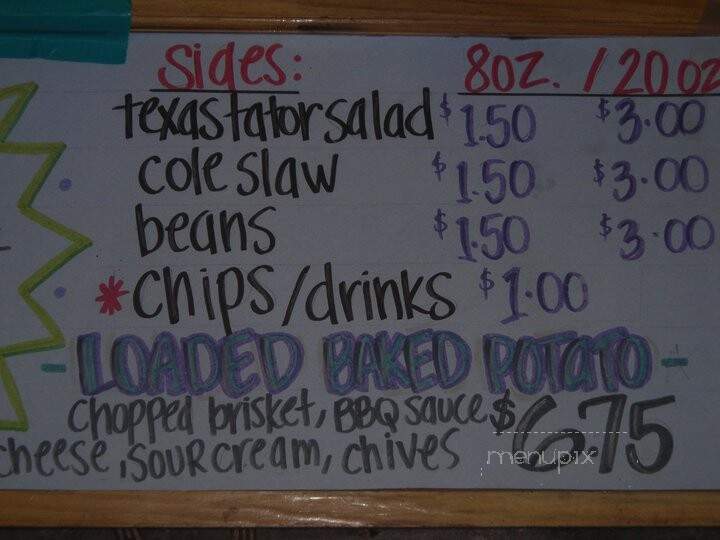 Sides: 8oz. / 20 oz
texas tator salad $1.50 $3.00
cole slaw $1.50 $3.00
beans $1.50 $3.00
*chips/drinks $1.00
- LOADED BAKED POTATO -
chopped brisket, BBQ sauce $6.75
cheese, sour cream, chives
menupix